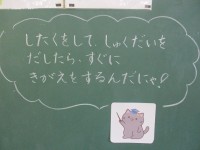 したくをして、しゅくだいを
だしたら、すぐに
きがえをするんだにゃ!